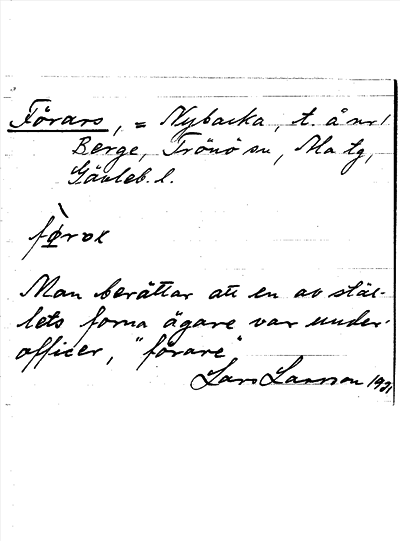 Förars, = Nybacka, t. å nr 1
Berge, Trönö sn, Ma tg,
Gävleb. l.
Man berättar att en av stäl-
lets forna ägare var under-
officer, "förare"
Lars Larsson 1921